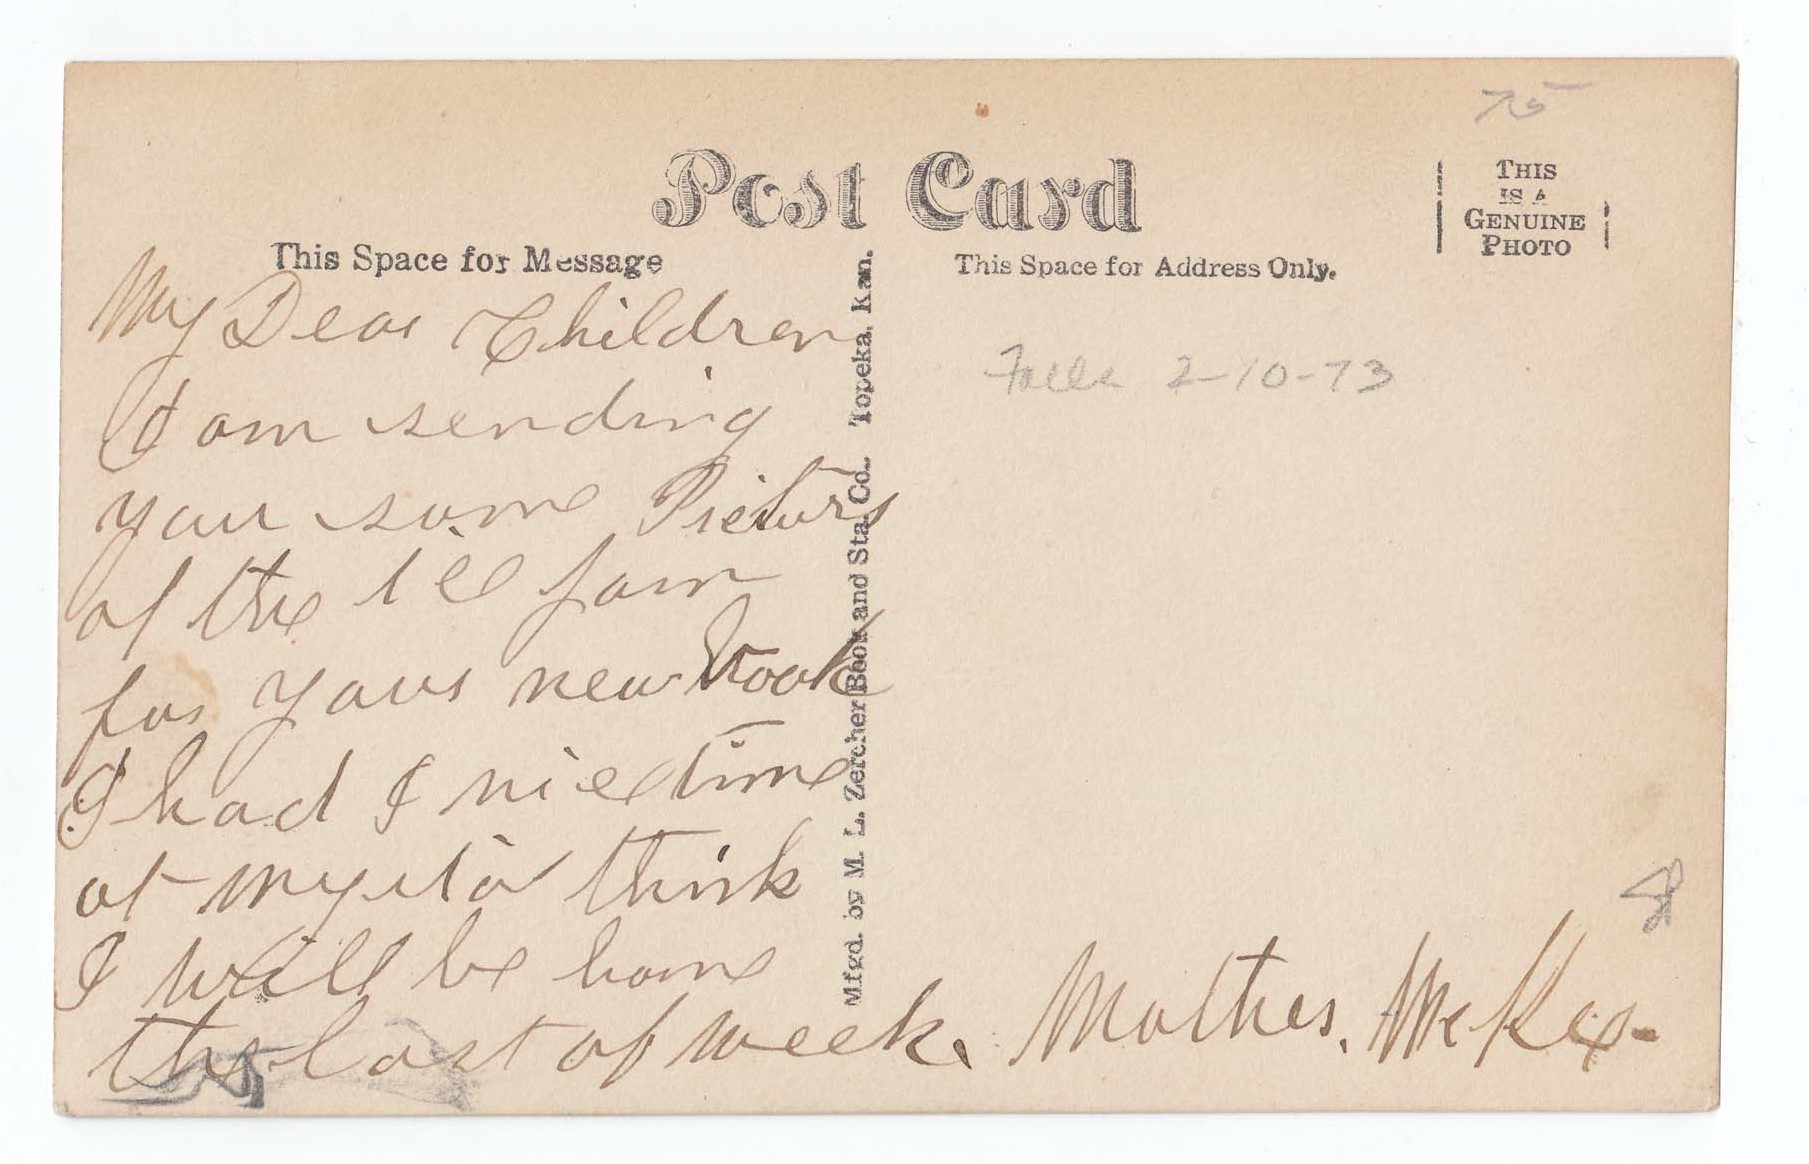 75
Post Card
THIS
IS A
GENUINE
PHOTO
This Space for Message
This Space for Address Only.
My Dear Children
I am sending
you some Picturs
of the ice jam
for yours new book
I had I nice time
at think
I will be home
the last of week.
Mother. McKee
Mfgd. by M. L. Zercher Book and Sta. Co. Topeka, Kan.
2-10-73